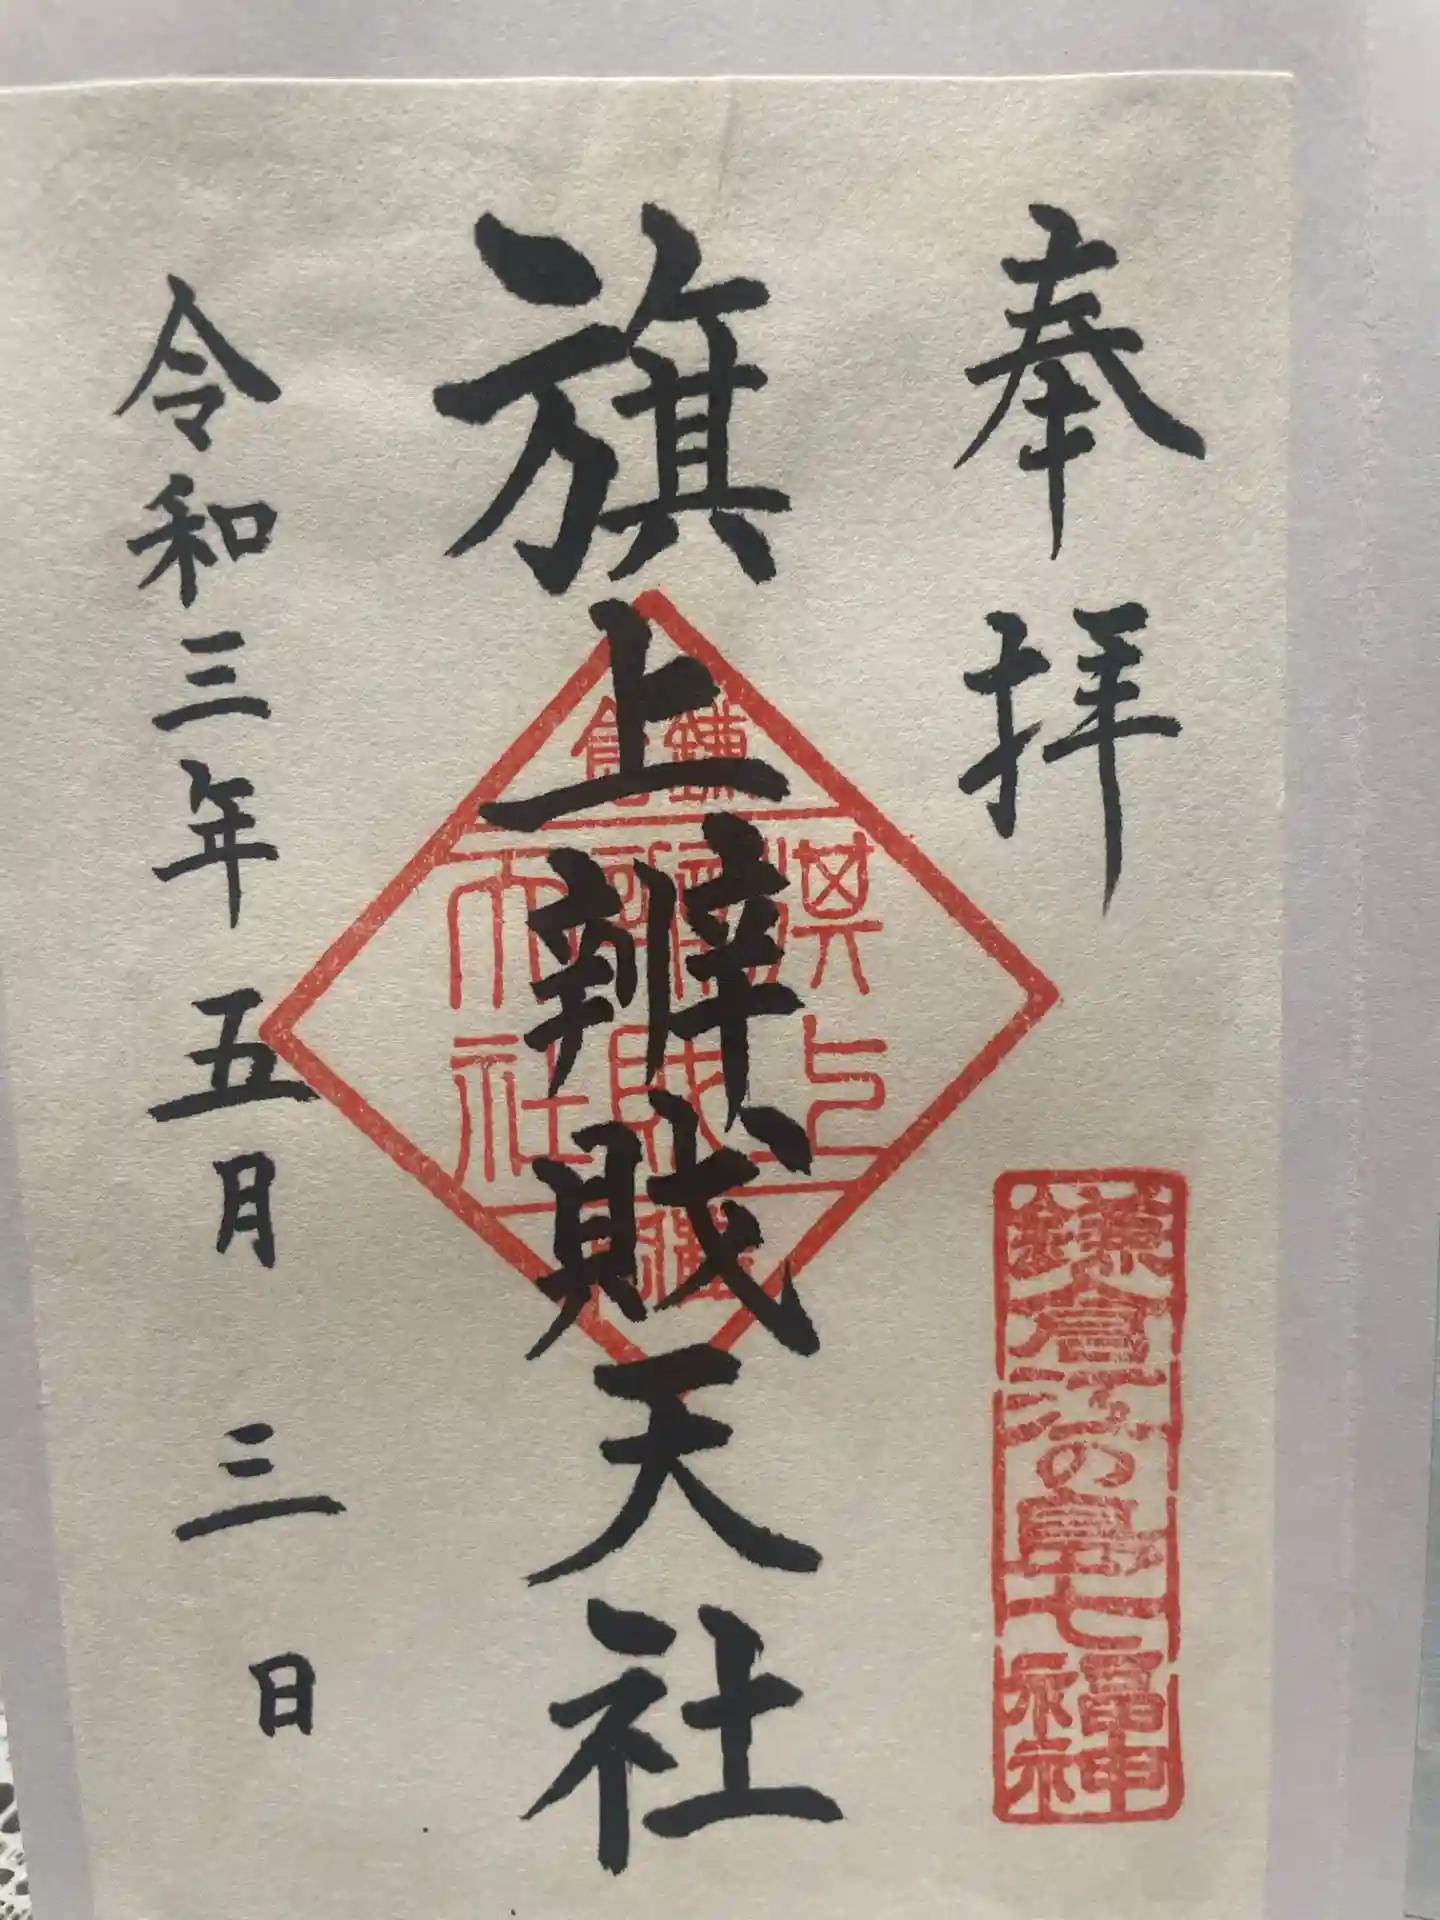 奉拝
鎌倉江の島七福神
旗上辨財天社
鎌倉
令和三年五月三日